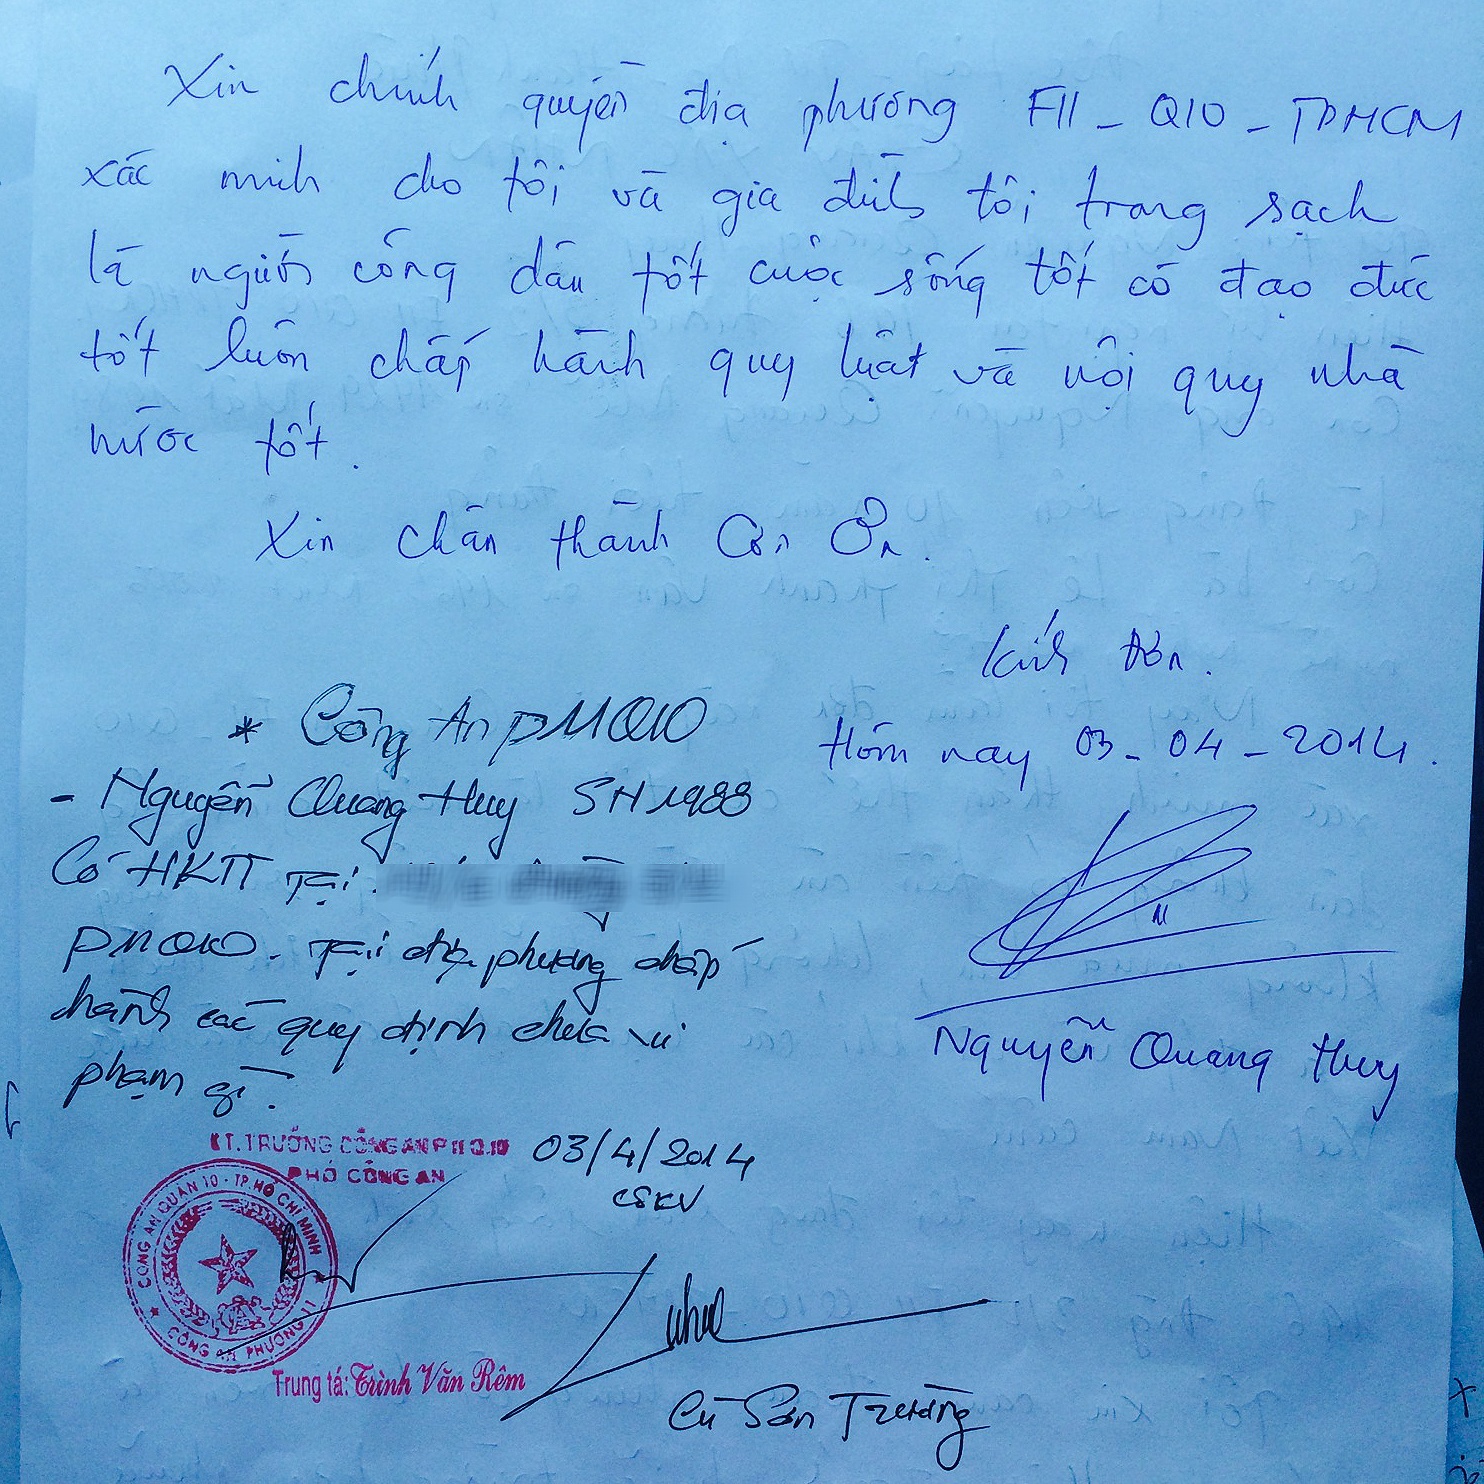 Xin chính quyền địa phương F11 - Q10 - TPHCM
xác minh cho tôi và gia đình tôi trong sạch
là người công dân tốt cuộc sống tốt có đạo đức
tốt luôn chấp hành quy luật và nội quy nhà
nước tốt.
Xin chân thành Cảm Ơn.
Kính đơn.
Hôm nay 03 - 04 - 2014.
Nguyễn Quang Huy
* Công An P11Q10
- Nguyễn Quang Huy SN 1988
Có HKTT Tại
P11Q10. Tại địa phương chấp
hành các quy định chưa vi
phạm gì.
KT. TRƯỞNG CÔNG AN P11 Q.10
PHÓ CÔNG AN
03/4/2014
CSKV
CÔNG AN QUẬN 10 - TP. HỒ CHÍ MINH
CÔNG AN PHƯỜNG 11
Trung tá: Trình Văn Rêm
Cù Sơn Trường